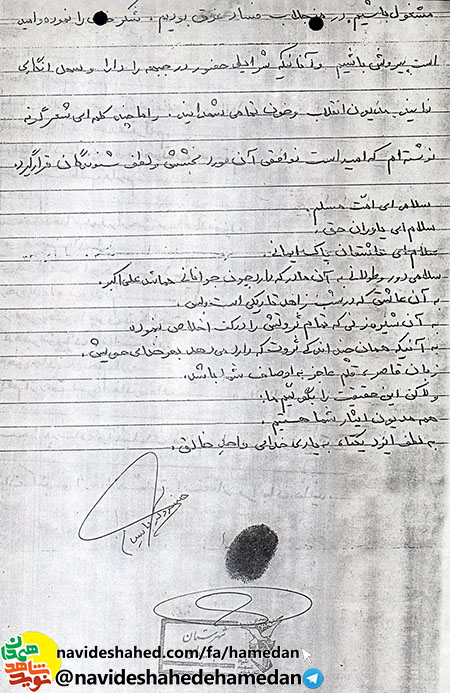 مشغول باشیم در منجلاب فساد غرق بودیم، شکر را نموده و امید
است پیروش باشیم و آنانیکه شرایطی حضور در جبهه را دارا و سهل انگاری
نمایند مدیون انقلاب و خون تمامی شهدایند. و اما چند کلمه ای شعر گونه
نوشته ام که امید است نواقص آن مورد بخشش و لطف شنوندگان قرار گیرد.
سلام ای امت مسلم.
سلام ای یاوران حق.
سلام ای عاشقان پاک ایمانی.
سلامی دور و طولانی به آن مادر که دارد چون جوانانی همانند علی اکبر.
به آن عاشق که در شب زاهد تاریکی است ولی.
به آن شیرزنی که تمام ثروتش را در کف اخلاص نموده
به آنیکه همان چند اندک ثروت که دارد می دهد بهر خدای خویش.
زبان قاصر، قلم عاجز به اوصاف شما باشد.
ولاکن این حقیقت را بگوئیم ما:
همه مدیون ایثار شما هستیم.
به لطف ایزد یکتا، به یاری خدایی واحد خالق.
شهرستان
navideshahed.com/fa/hamedan
@navideshahedehamedan
نوید شاهد
همدان